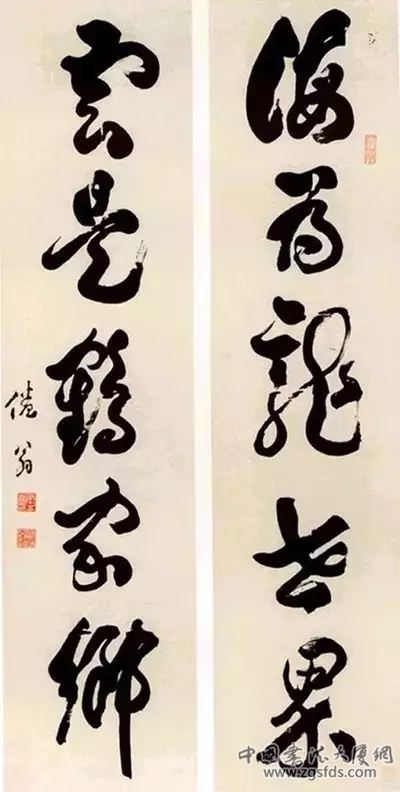 海為龍世界
雲是鶴家鄉
倦翁
中國書法大厦網
www.zgsfds.com